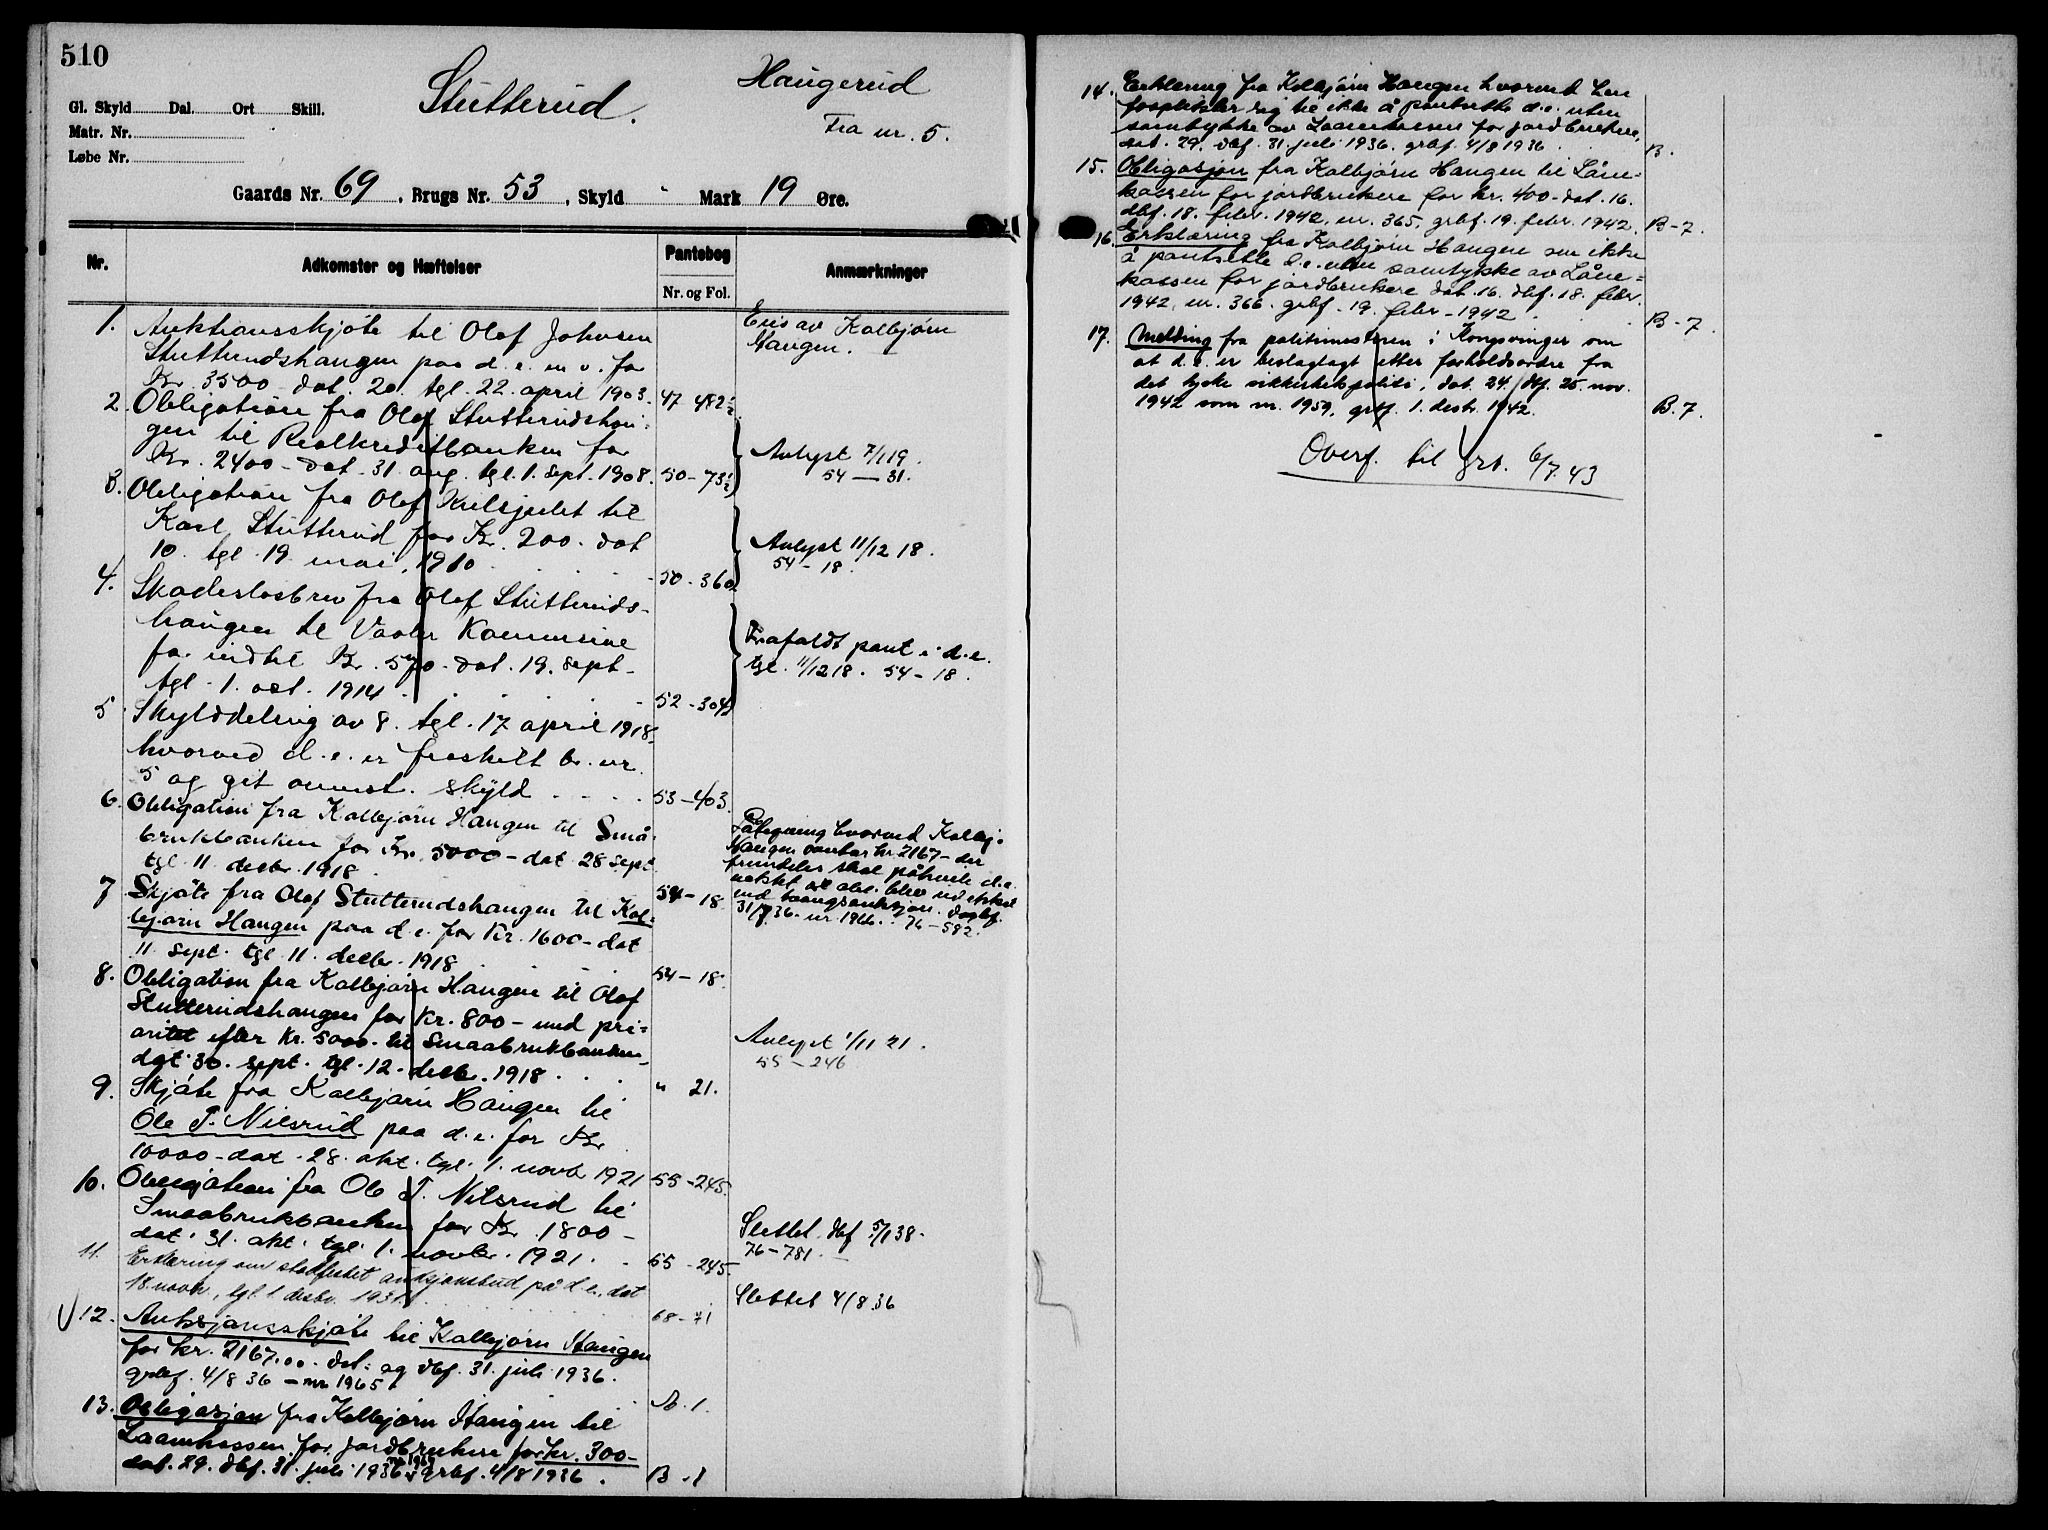 510
Stutterud.
Haugerud
Fra nr. 5.
Gl. Skyld Dal. Ort Skill.
Matr. Nr.
Løbe Nr.
Gaards Nr. 69, Brugs Nr. 53, Skyld " Mark 19 Øre.
Nr.
Adkomster og Hæftelser
Pantebog
Nr. og Fol.
Anmærkninger
1. Auktionsskjøte til Olof Johnsen
Stutterudshaugen paa d. e. m v. for
Kr. 3500 dat. 20. tgl. 22. april 1903. 47 482½
Eies av Kolbjørn
Haugen.
2. Obligation fra Olof Stutterudshau-
gen til Realkreditbanken for
Kr. 2400 - dat. 31. aug. tgl. 1. sept. 1908. 50-73½
Avlyst 7/1 19.
54 — 31.
3. Obligation fra Olof til
Karl Stutterud for Kr. 200. dat
10. tgl. 19. mai. 1910 50-360
Avlyst 11/12 18.
54-18.
4. Skadesløsbrev fra Olof Stutteruds-
haugen til Vaaler Kommune
for indtil Kr. 570 - dat. 19. sept.
tgl. 1. oct. 1914 52-304
Frafaldt pant i d. e.
tgl. 11/12 18. 54-18.
5. Skylddeling av 8. tgl. 17 april 1918
hvorved d. e. er fraskilt br. nr.
5 og git anmst. skyld 53-403.
6. Obligation fra Kolbjørn Haugen til Små-
brukbanken for Kr. 5000 - dat 28 sept
tgl. 11. decbr. 1918 54-18
Påtegning hvorved Kolbj.
Haugen overtar kr. 2167 - der
fremdeles skal påhvile d. e.
uaktet at obl. blev
ved tvangsauksjon. dagbf.
31/7 36. nr 1966. 76-592.
7. Skjøte fra Olof Stutterudshaugen til Kol-
bjørn Haugen paa d. e. for Kr. 1600 - dat
11. sept. tgl. 11. decbr. 1918 54-18.
8. Obligation fra Kolbjørn Haugen til Olof
Stutterudshaugen for Kr. 800 - med pri-
oritet efter Kr. 5000. til Smaabrukbanken -
dat. 30. sept. tgl. 12. decbr. 1918 " 21.
Avlyst 1/11 21.
55-246
9. Skjøte fra Kolbjørn Haugen til
Ole T. Nilsrud paa d. e. for Kr
10000 - dat. 28. okt. tgl. 1. novb 1921 55-245.
10. Obligation fra Ole T. Nilsrud til
Smaabrukbanken for Kr. 1800 -
dat. 31. okt. tgl. 1. novbr. 1921. 55-245.
Slettet. dbf. 5/1 38.
76-781.
11. Erklæring om stadfestet auksjonsbud på d. e. dat
18. novbr., tgl. 1 desbr. 1931. 68-71
Slettet 4/8 36
12. Auksjonsskjøte til Kolbjørn Haugen
for kr. 2167.00. dat. og dbf. 31. juli 1936.
grbf. 4/8 36 - nr 1965. A. 1.
13. Obligasjon fra Kolbjørn Haugen til
Laanekassen for jordbrukere for kr. 300 -
dat. 29. dbf. 31. juli 1936 grbf. 4/8 1936. B-1
14. Erklæring fra Kolbjørn Haugen hvorved han
forplikter sig til ikke å pantsette d. e. uten
samtykke av Laanekassen for jordbrukere,
dat. 29. dbf. 31. juli 1936. grbf. 4/8 1936. B.
15. Obligasjon fra Kolbjørn Haugen til Låne-
kassen for jordbrukere for kr. 400 - dat. 16.
dbf. 18. febr. 1942, nr. 365, grbf. 19. febr. 1942. B-7.
16. Erklæring fra Kolbjørn Haugen om ikke
å pantsette d. e. uten samtykke av Låne-
kassen for jordbrukere dat. 16. dbf. 18. febr.
1942. nr. 366. grbf. 19. febr. 1942. B-7.
17. Melding fra politimesteren i Kongsvinger om
at d. e. er beslaglagt etter forholdsordre fra
det tyske sikkerhetspoliti, dat. 24. dbf. 25. nov.
1942 som nr. 1959, grbf. 1. desbr. 1942. B.7.
Overf. til grb. 6/7.43